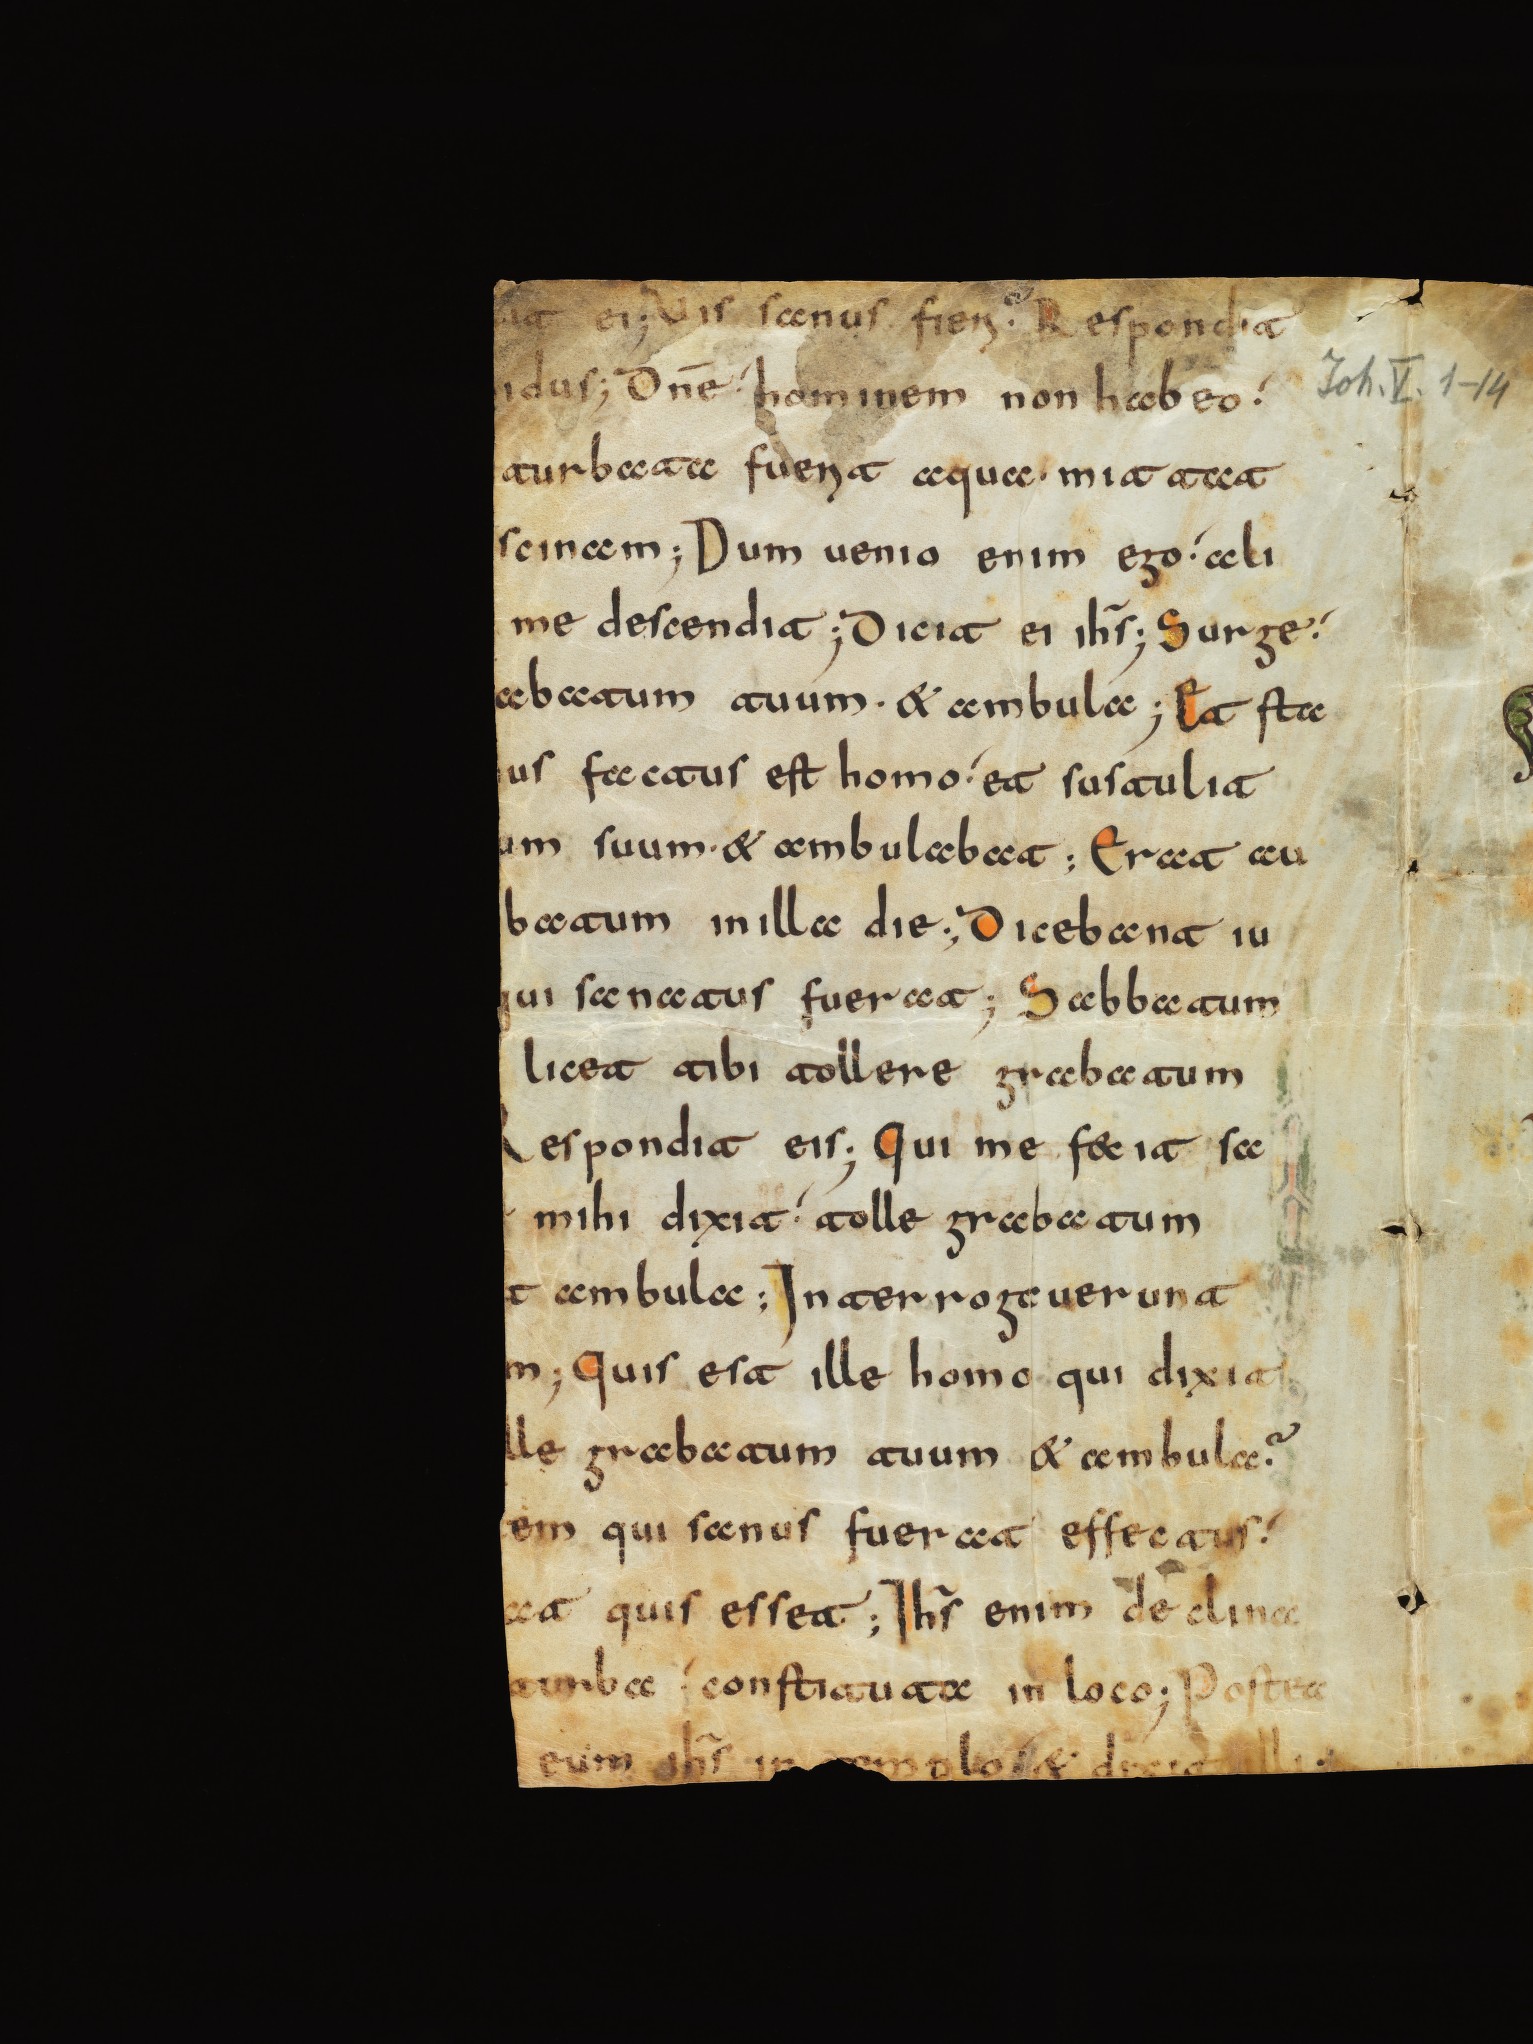 ei; Vis sanus fieri? Respondit
idus; Dn̄e hominem non habeo
Joh. V. 1-14
turbata fuerit aqua· mittat
scinam; Dum uenio enim ego ali
me descendit; Dicit ei ih̄s; Surge
abatum tuum· & ambula; Et sta
us factus est homo et sustulit
um suum· & ambulabat; Erat au
batum in illa die; Dicebant iu
qui sanatus fuerat; Sabbatum
licet tibi tollere grabatum
Respondit eis; Qui me fecit sa
mihi dixit tolle grabatum
t ambula; Interrogauerunt
m; Quis est ille homo qui dixit
lle grabatum tuum & ambula?
em qui sanus fuerat effectus
at quis esset; Ih̄s enim declina
turba constituta in loco; Postea
eum ih̄s in templo & dixit illi